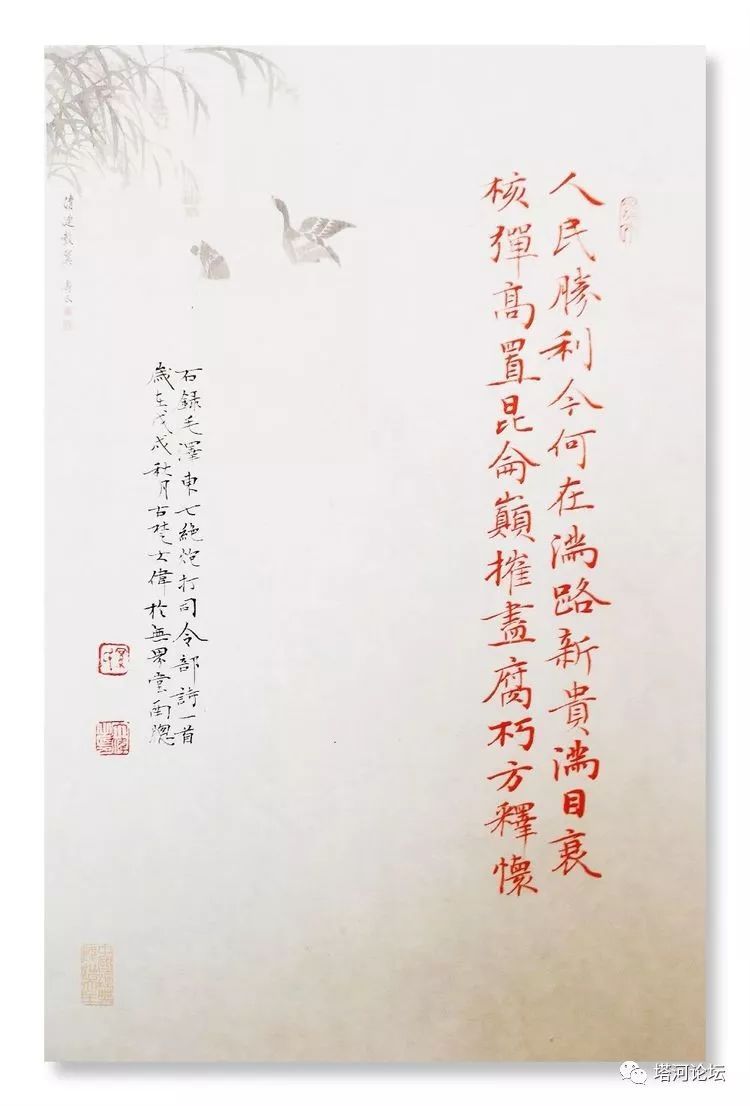 人民勝利今何在滿路新貴滿目衰
核彈高置昆侖巔摧盡腐朽方釋懷
石錄毛澤東七絕炮打司令部詩一首
歲在戊戌秋月古楚士偉於無界堂南牕
塔河论坛